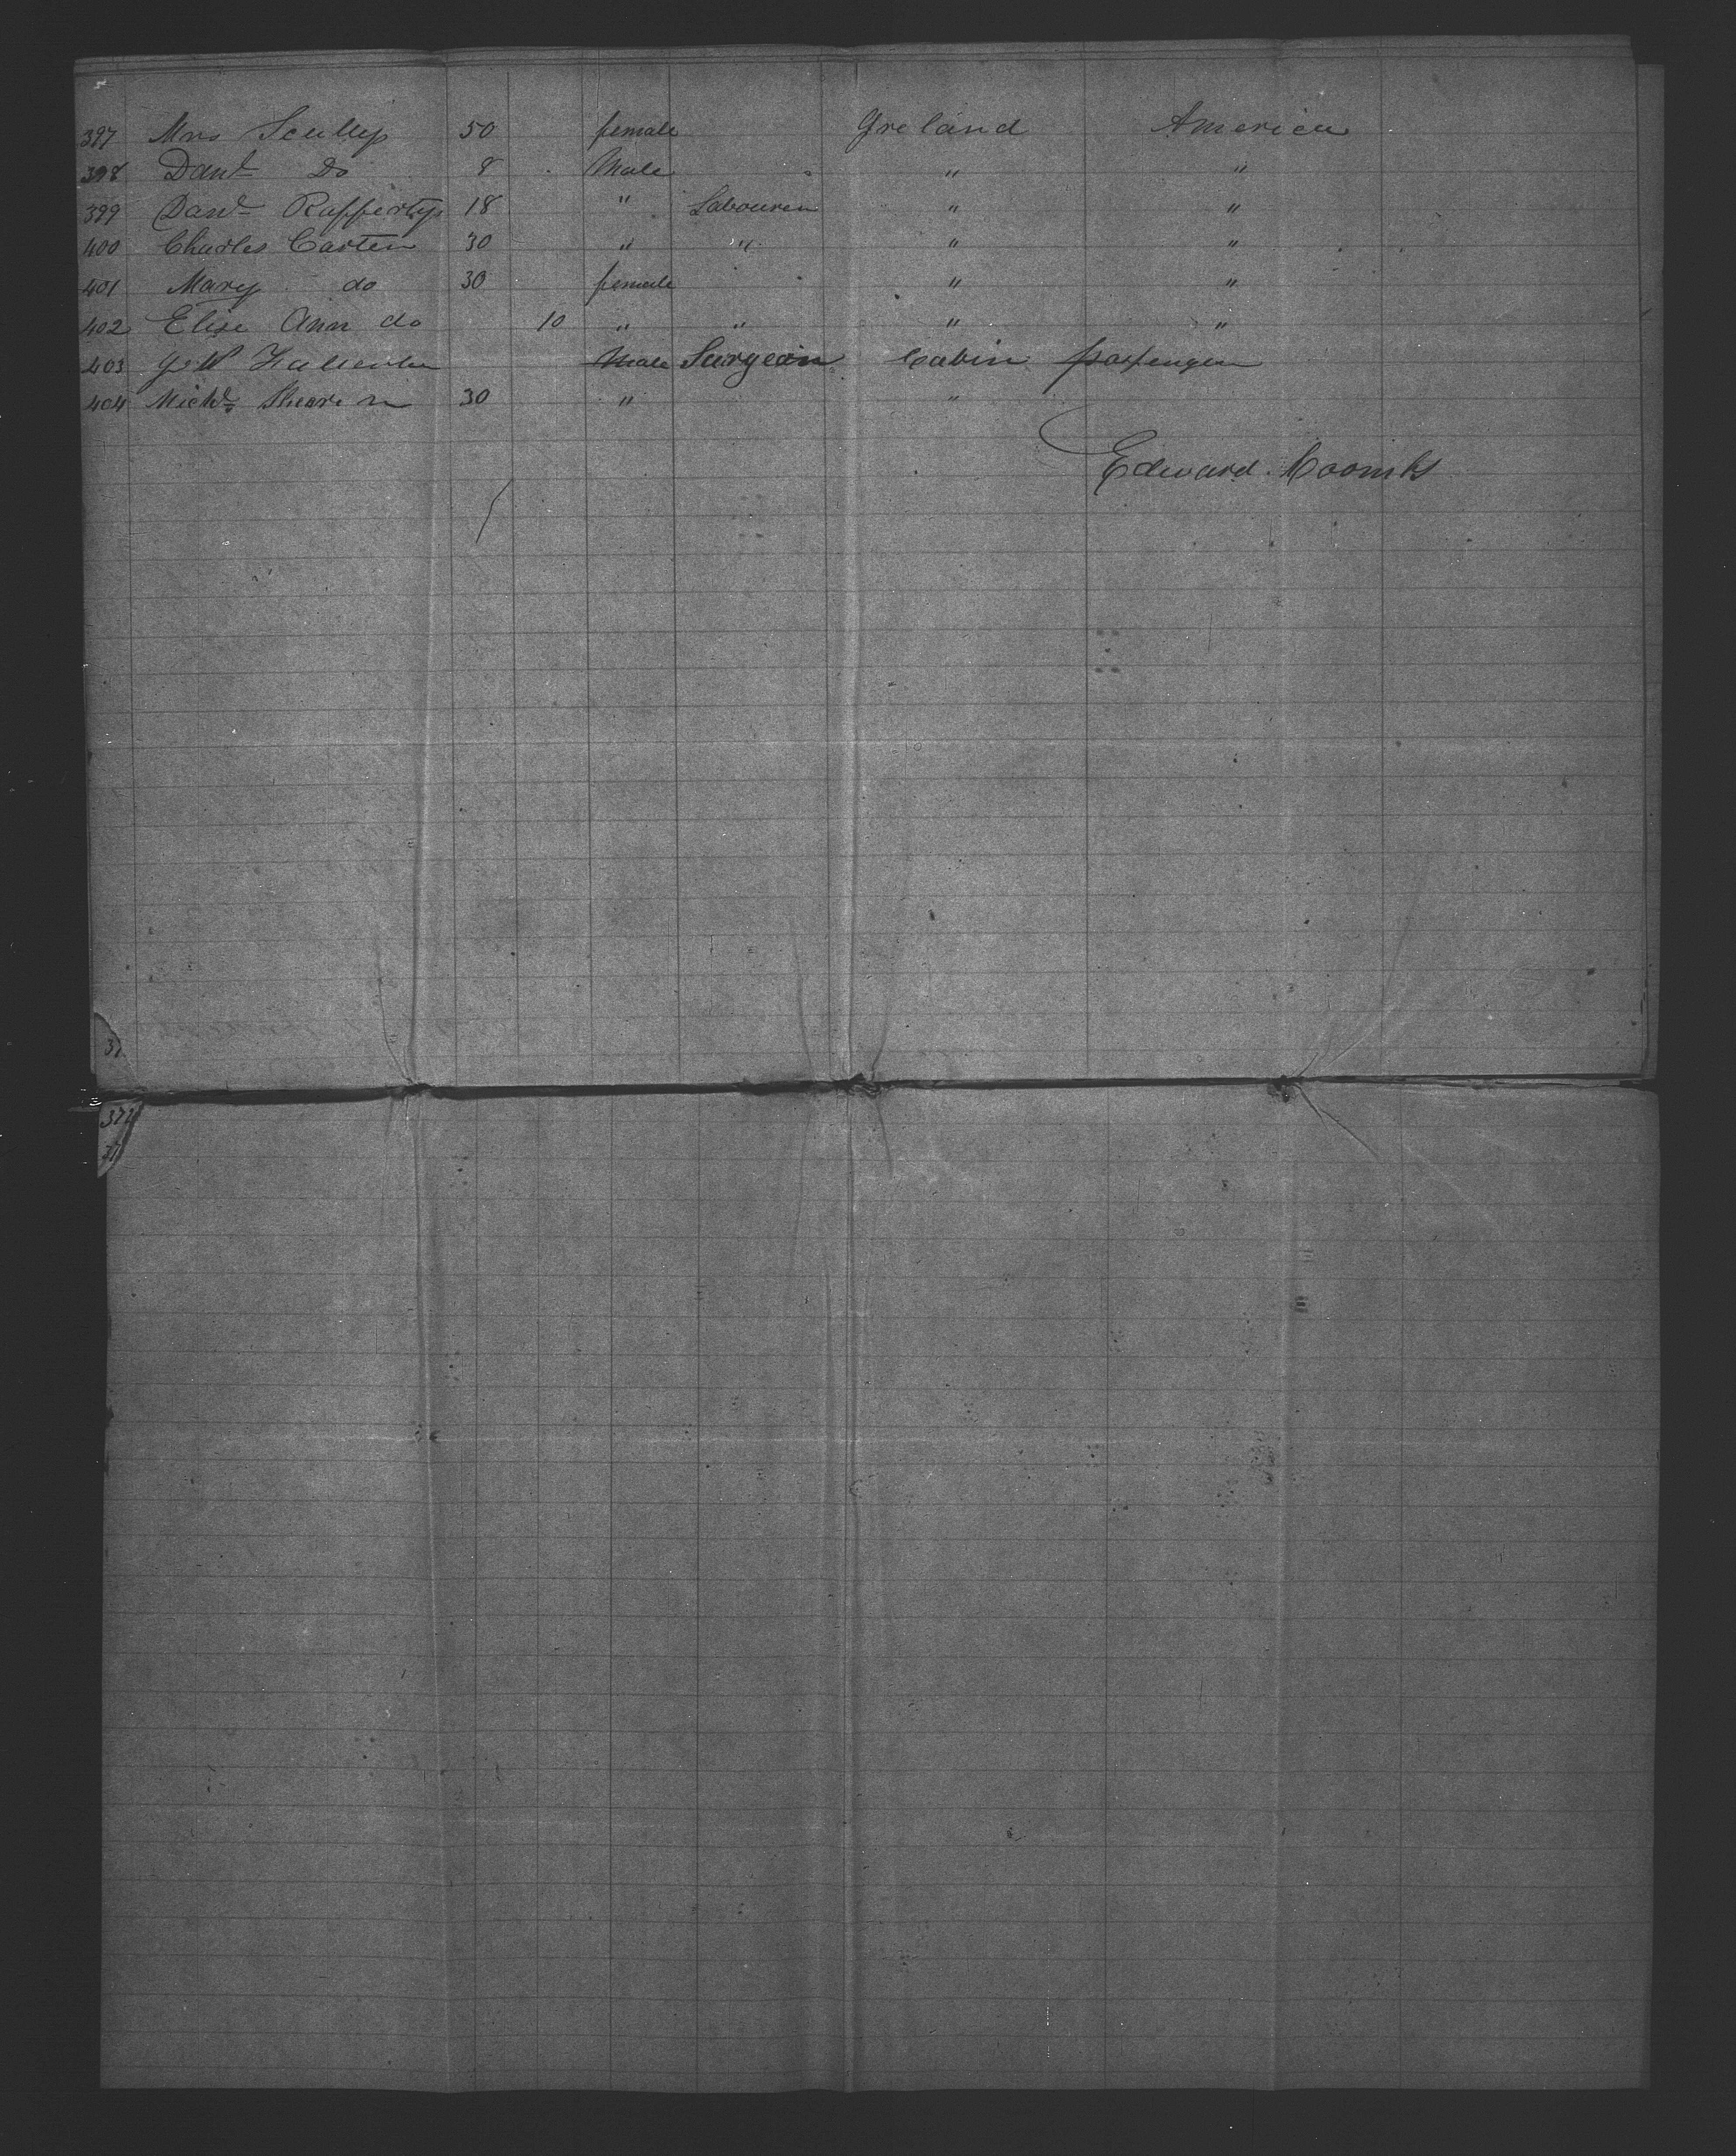 397 Mrs Scully 50 female Ireland America
398 Danl Do 8 Male " "
399 Danl Rafferty 18 " Labourer " "
400 Charles Carten 30 " " " "
401 Mary do 30 female " "
402 Elise Ann do 10 " " " "
403 Male Surgeon Cabin passenger
404 Michl 30 " "
Edward Coombs
37
372
37